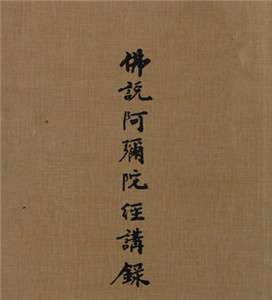 佛說阿彌陀經講錄